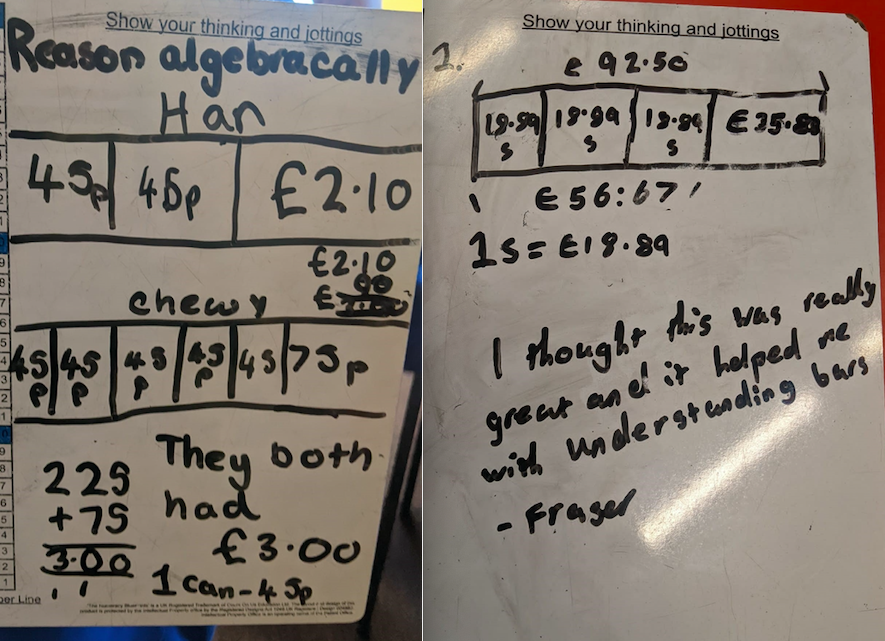 Show your thinking and jottings
Reason algebracally
Han
45p 45p £2.10
£2.10
90
chewy £3.00
45p 45p 45p 45p 45 75p
They both
had
£3.00
225
+75
3.00
1 1
1 can - 45p
Show your thinking and jottings
1.
£92.50
18.89 s 18.89 s 18.89 s £35.83
£56:67
1s = £18.89
I thought this was really
great and it helped me
with understanding bars
- Fraser